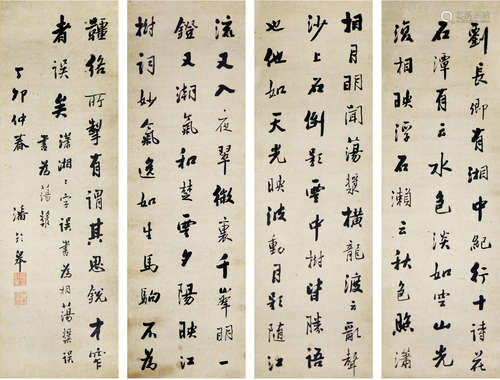 劉長卿有湘中紀行十詩花
石潭有云水色淡如空山光
復相映浮石瀨云秋色照瀟
相月明聞蕩槳橫龍渡云歌聲
沙上石倒影雲中樹皆勝語
也他如天光映波動月影隨江
流又入夜翠微裏千峯明一
鐙又潮氣和楚雲夕陽映江
樹詞妙氣逸如生馬駒不為
韁絡所掣有謂其思銳才窄
者誤矣
瀟湘之字誤書為相蕩槳誤
書為蕩
丁卯仲春 潘齡皋